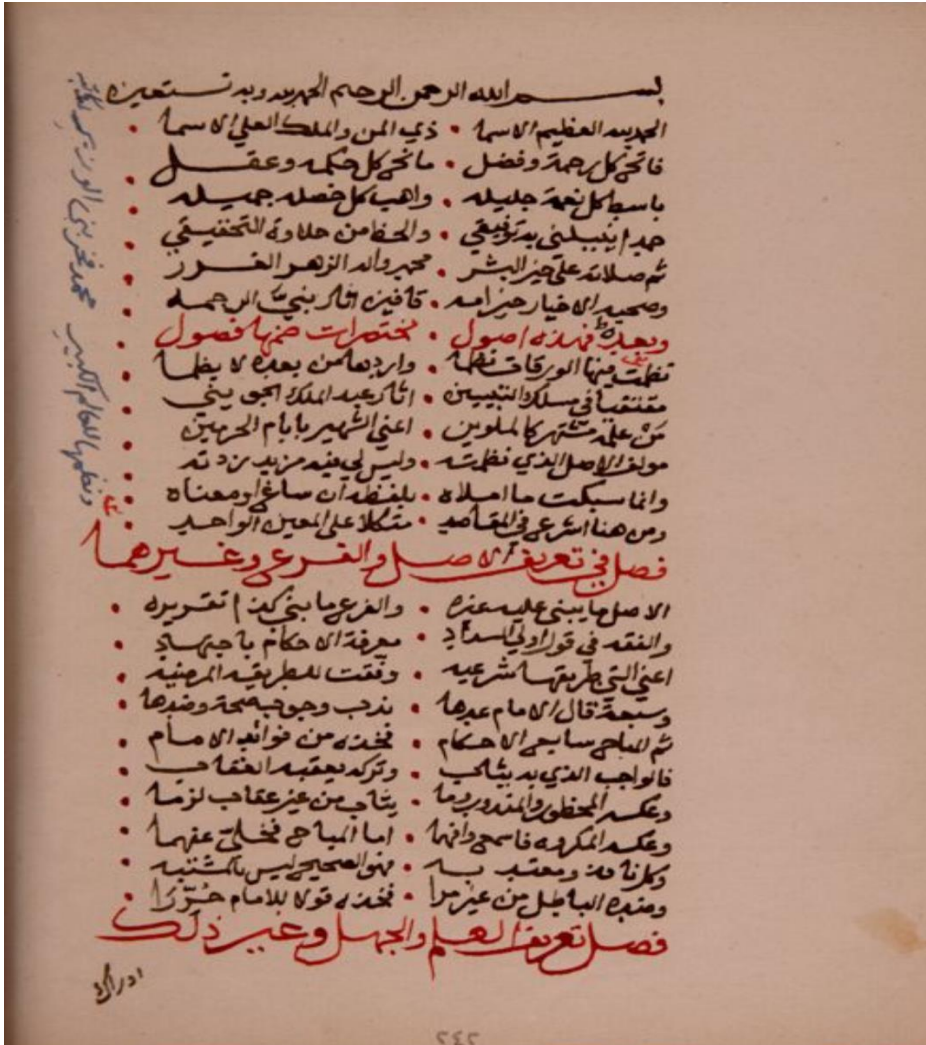 بسم الله الرحمن الرحيم الحمد لله وبه نستعين
الحمد لله العظيم الاسما • ذي المن والملك العلي الاسما
فاتح كل رحمة وفضل • مانح كل حكمه وعقل
باسط كل نعمة جليله • واهب كل خصله جميله
حمدا ينيلني به توفيقي • والحظ من حلاوة التحقيقي
ثم صلاته على خير البشر • محمد واله الزهر الغرر
وصحبه الاخيار خير امه • قافين اثار بني الرحمه
وبعد فهذه اصول • مختصرات ضمنها فصول
نظمت فيها الورقات نظما • واردها من بعده لا يظما
مقتفيا في مسلك التبيين • اثار عبد الملك الجويني
من علمه مشتهر كالملوين • اعني الشهير بامام الحرمين
مولف الاصل الذي نظمته • وليس لي فيه مزيد زدته
وانما سبكت ما املاه • بلفظه ان ساغ او معناه
ومن هنا اشرع في المقاصد • متكلا على المعين الواحد
فصل في تعريف الاصل والفرع وغيرهما
الاصل ما يبنى عليه غيره • والفرع ما بني كذا تقريره
والفقه في قول اولي السداد • معرفة الاحكام باجتهاد
اعني التي طريقها شرعيه • وفقت للطريقه المرضيه
وسبعة قال الامام عدها • ندب وجوب صحة وضدها
ثم المباح سابع الاحكام • فخذه من فوائد الامام
فالواجب الذي به يثاب • وتركه يعقبه العقاب
وعكسه المحظور والمندوب ما • يثاب من غير عقاب لزما
وعكسه المكروه فاسمع وافهما • اما المباح فخلي عنهما
وكل نافذ ومعتد به • فهو الصحيح ليس بالمشتبه
وضده الباطل من غير مرا • فخذه قولا للامام حررا
فصل تعريف العلم والجهل وغير ذلك
ادراك
ونظمها للعالم الكبير محمد فخر بني الوزير
٢٤٢